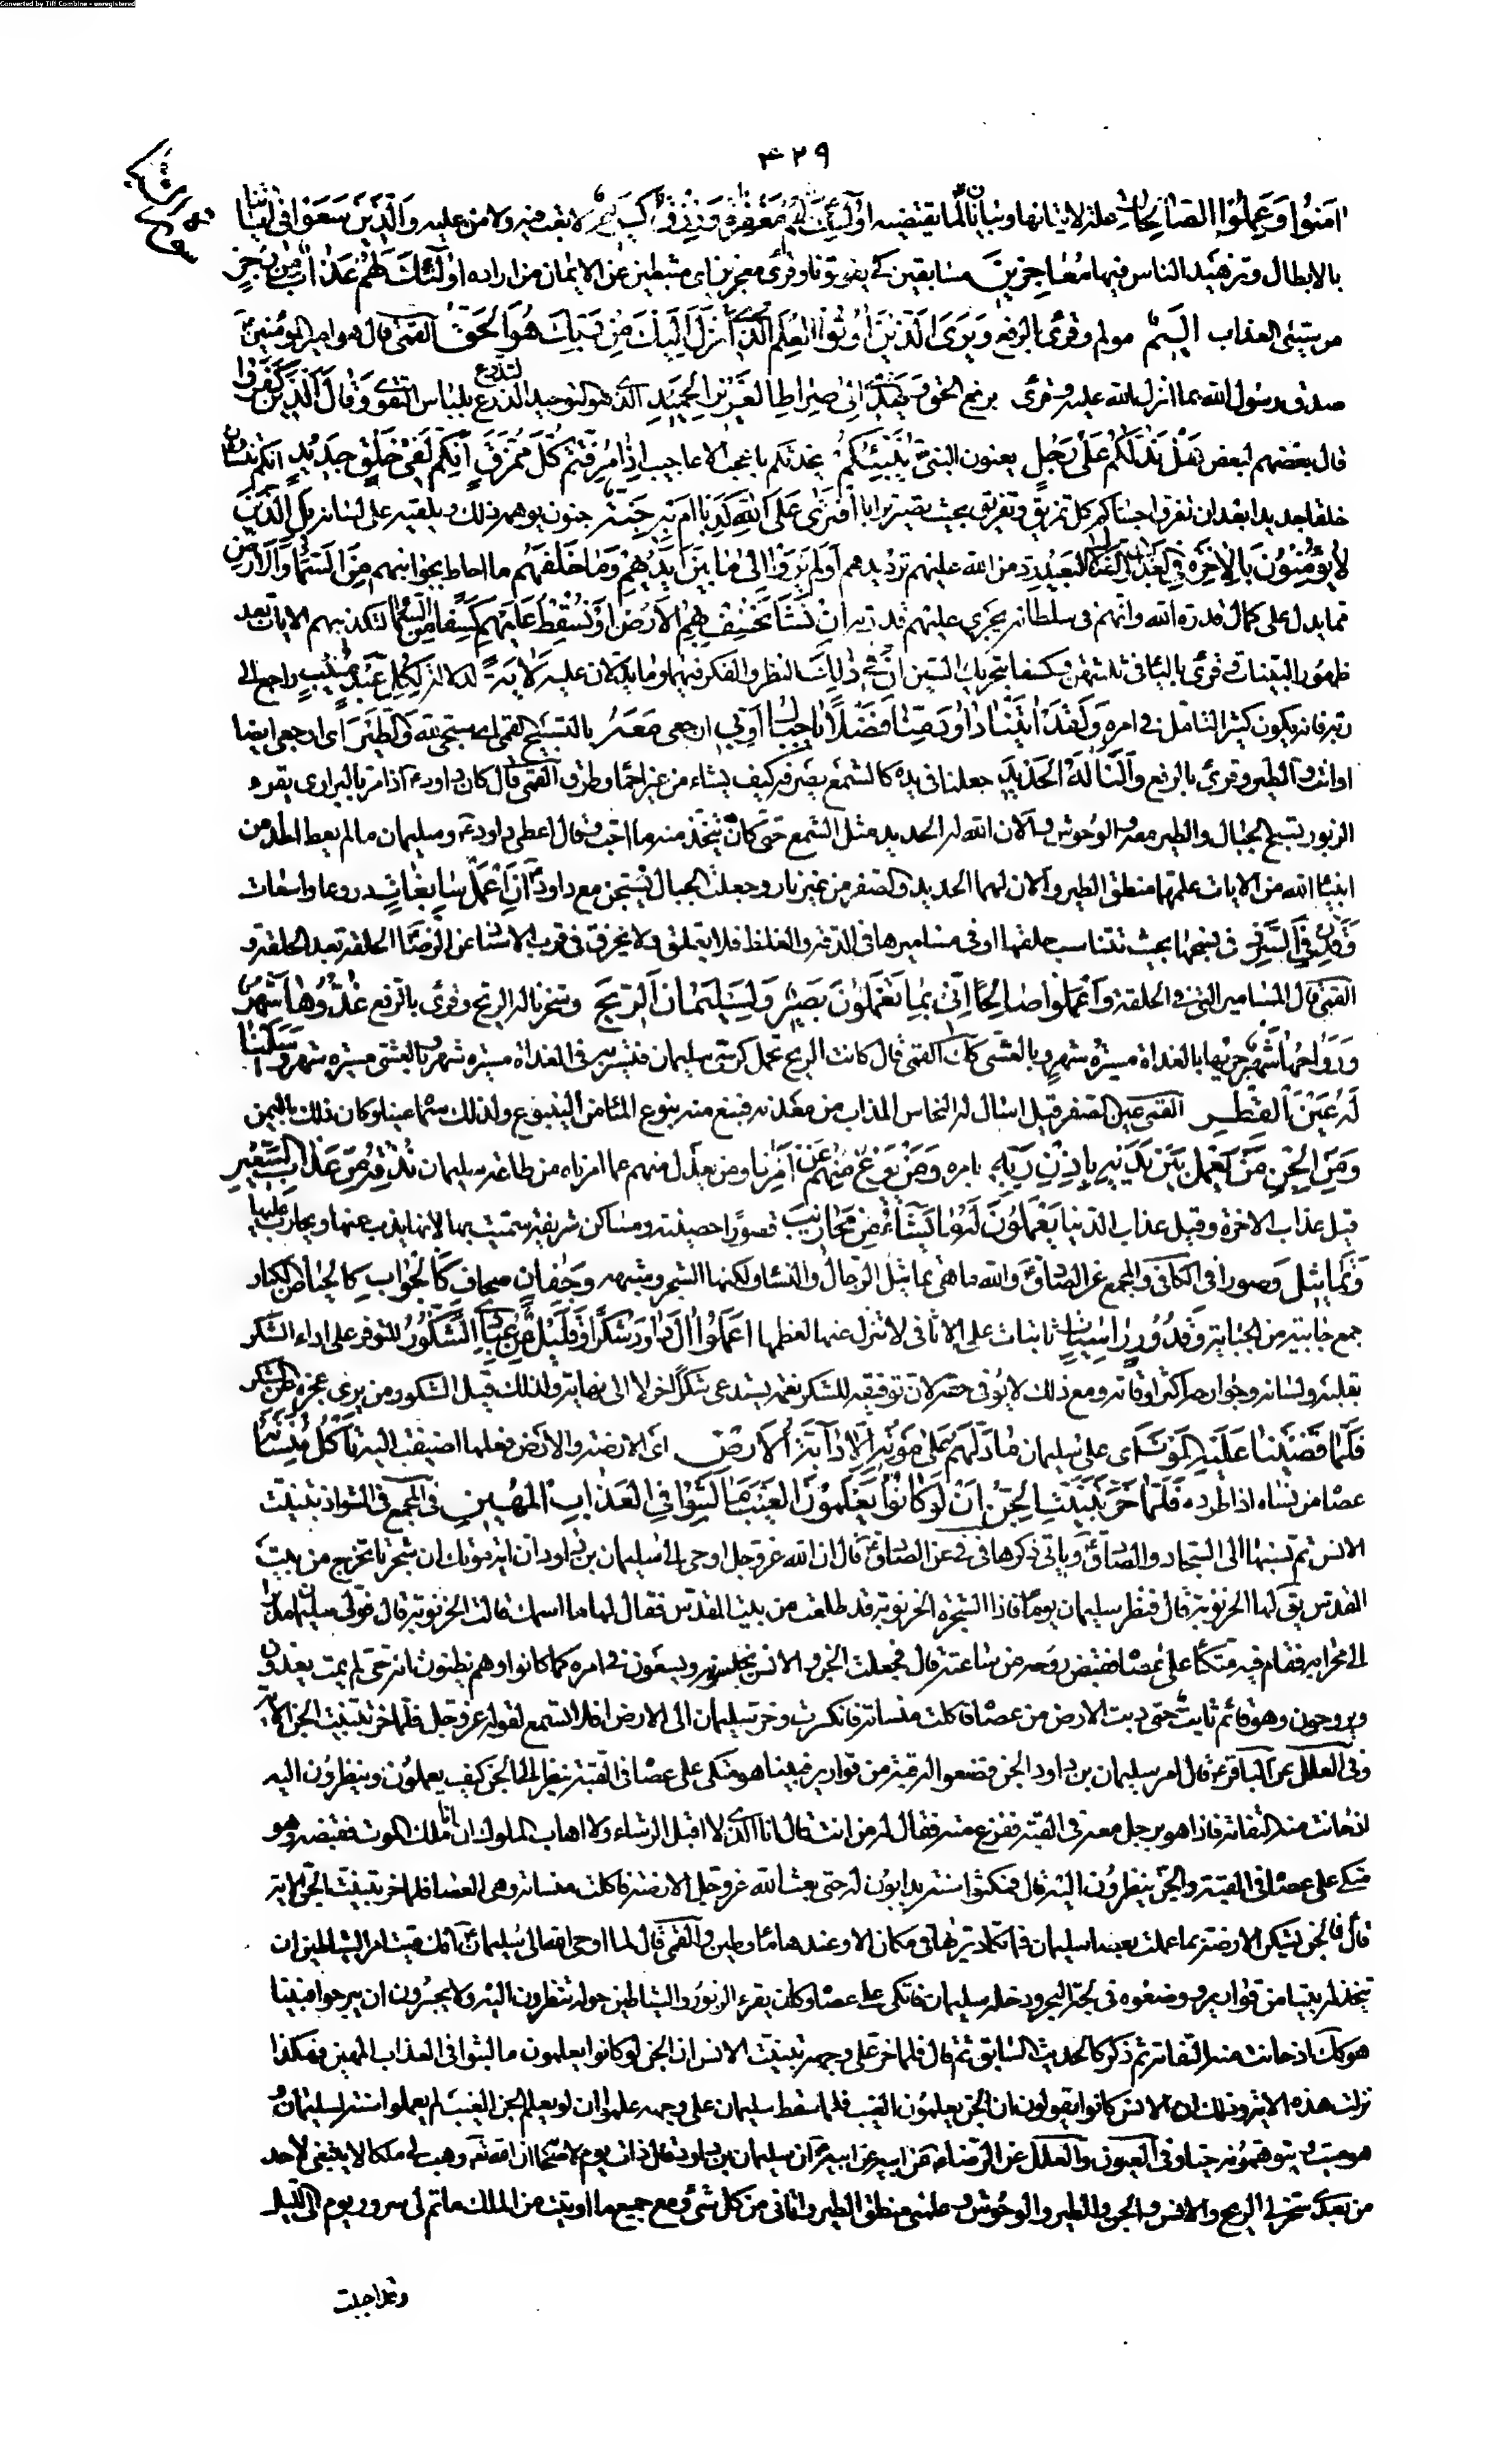 Converted by Tiff Combine - unregistered
٣٢٩
امَنُوا وَعَمِلُوا الصَّالِحاتِ علة لاتيانها وبيان لما يقتضيه اولئِكَ لَهُمْ مَغْفِرَةٌ وَرِزْقٌ كَرِيمٌ لا يتعب فيه ولا من عليه وَالَّذِينَ سَعَوْا فِي اياتِنا
بالابطال وتزهيد الناس فيها مُعاجِزِينَ مسابقين كي يفوتونا وقرئ معجزين اي مثبطين عن الايمان من اراده اُولئِكَ لَهُمْ عَذابٌ مِنْ رِجْزٍ
من سيئ العذاب اَلِيمٌ مولم وقرئ بالرفع وَيَرَى الَّذِينَ اُوتُوا الْعِلْمَ الَّذِي اُنْزِلَ اِلَيْكَ مِنْ رَبِّكَ هُوَ الْحَقَّ القمى قال هو امير المؤمنين
صدق رسول الله بما انزل الله عليه وقرئ برفع الحق وَيَهْدِي اِلى صِراطِ الْعَزِيزِ الْحَمِيدِ الذي هو التوحيد التدرع بلباس التقوى وَقالَ الَّذِينَ كَفَرُوا
قال بعضهم لبعض هَلْ نَدُلُّكُمْ عَلى رَجُلٍ يعنون النبي يُنَبِّئُكُمْ يحدثكم باعجب الاعاجيب اِذا مُزِّقْتُمْ كُلَّ مُمَزَّقٍ اِنَّكُمْ لَفِي خَلْقٍ جَدِيدٍ انكم تنشأون
خلقا جديدا بعد ان تفرق اجسادكم كل تمزيق وتفريق بحيث يصير ترابا اَفْتَرى عَلَى اللهِ كَذِبًا اَمْ بِهِ جِنَّةٌ جنون يوهمه ذلك ويلقيه على لسانه بَلِ الَّذِينَ
لا يُؤْمِنُونَ بِالْاخِرَةِ فِي الْعَذابِ وَالضَّلالِ الْبَعِيدِ رد من الله عليهم ترديدهم اَوَلَمْ يَرَوْا اِلى ما بَيْنَ اَيْدِيهِمْ وَما خَلْفَهُمْ ما احاط بجوانبهم مِنَ السَّماءِ وَالْاَرْضِ
مما يدل على كمال قدرة الله وانهم في سلطانه يجرى عليهم قدرته اِنْ نَشَأْ نَخْسِفْ بِهِمُ الْاَرْضَ اَوْ نُسْقِطْ عَلَيْهِمْ كِسَفًا مِنَ السَّماءِ لتكذيبهم الايات بعد
ظهور البينات وقرئ بالياء في ثلثتهن وكسفا بتحريك السين اِنَّ فِي ذلِكَ النظر والفكر فيهما وما يدلان عليه لَايَةً لدلالة لِكُلِّ عَبْدٍ مُنِيبٍ راجع الى
ربه فانه يكون كثير التامل في امره وَلَقَدْ اتَيْنا داوُدَ مِنَّا فَضْلًا يا جِبالُ اَوِّبِي ارجعى مَعَهُ بالتسبيح القمى اى سبحى لله وَالطَّيْرَ اى ارجعى ايضا
او انت والطير وقرئ بالرفع وَاَلَنَّا لَهُ الْحَدِيدَ جعلنا في يده كالشمع يصرفه كيف يشاء من غير احماء وطرق القمى قال كان داود اذا مر بالبراري يقرء
الزبور تسبح الجبال والطير معه والوحوش والان الله له الحديد مثل الشمع حتى كان يتخذ منه ما احب وقال اعطى داود وسليمان ما لم يعط احد من
انبياء الله من الايات علمهما منطق الطير والان لهما الحديد والصفر من غير نار وجعلت الجبال تسبحن مع داود اَنِ اعْمَلْ سابِغاتٍ دروعا واسعات
وَقَدِّرْ فِي السَّرْدِ في نسجها بحيث تتناسب حلقها او في مساميرها في الدقة والغلظ فلا يغلق ولا تحرق في قرب الاسناد عن الرضا الحلقة بعد الحلقة و
القمى قال المسامير التي في الحلقة وَاعْمَلُوا صالِحًا اِنِّي بِما تَعْمَلُونَ بَصِيرٌ وَلِسُلَيْمانَ الرِّيحَ وسخرنا له الريح وقرئ بالرفع غُدُوُّها شَهْرٌ
وَرَواحُها شَهْرٌ جريها بالغداة مسيرة شهر وبالعشى كذلك القمى قال كانت الريح تحمل كرسى سليمان فتسير به في الغداة مسيرة شهر وبالعشى مسيرة شهر وَاَسَلْنا
لَهُ عَيْنَ الْقِطْرِ القمى عين الصفر قيل اسال له النحاس المذاب من معدنه فنبع منه نبوع الماء من الينبوع ولذلك سماه عينا وكان ذلك باليمن
وَمِنَ الْجِنِّ مَنْ يَعْمَلُ بَيْنَ يَدَيْهِ بِاِذْنِ رَبِّهِ بامره وَمَنْ يَزِغْ مِنْهُمْ عَنْ اَمْرِنا ومن يعدل منهم عما امرناه من طاعة سليمان نُذِقْهُ مِنْ عَذابِ السَّعِيرِ
قيل عذاب الاخرة وقيل عذاب الدنيا يَعْمَلُونَ لَهُ ما يَشاءُ مِنْ مَحارِيبَ قصورا حصينة ومساكن شريفة سميت بها لانها يذب عنها ويحارب عليها
وَتَماثِيلَ وصورا في الكافي والمجمع عن الصادق والله ما هي تماثيل الرجال والنساء ولكنها الشجر وشبهه وَجِفانٍ صحاف كَالْجَوابِ كالحياض الكبار
جمع جابية من الجباية وَقُدُورٍ راسِياتٍ ثابتات على الاثافي لا تنزل عنها لعظمها اِعْمَلُوا الَ داوُدَ شُكْرًا وَقَلِيلٌ مِنْ عِبادِيَ الشَّكُورُ المتوفر على اداء الشكر
بقلبه ولسانه وجوارحه اكثر اوقاته ومع ذلك لا يوفى حقه لان توفيقه للشكر نعمة يستدعى شكرا اخر لا الى نهاية ولذلك قيل الشكور من يرى عجزه عن الشكر
فَلَمَّا قَضَيْنا عَلَيْهِ الْمَوْتَ اى على سليمان ما دَلَّهُمْ عَلى مَوْتِهِ اِلَّا دابَّةُ الْاَرْضِ اى الارضة والارض فعلها اضيفت اليه تَأْكُلُ مِنْسَأَتَهُ
عصاه من نسأه اذا طرده فَلَمَّا خَرَّ تَبَيَّنَتِ الْجِنُّ اَنْ لَوْ كانُوا يَعْلَمُونَ الْغَيْبَ ما لَبِثُوا فِي الْعَذابِ الْمُهِينِ في المجمع في الشواذ تبينت
الانس ثم نسبها الى السجاد والصادق وياتي ذكرها في عن الصادق قال ان الله عز وجل اوحى الى سليمان بن داود ان اية موتك ان شجرة تخرج من بيت
المقدس يق لها الخرنوبة قال فنظر سليمان يوما فاذا الشجرة الخرنوبة قد طلعت من بيت المقدس فقال لها ما اسمك قالت الخرنوبة قال فولى سليمان مدبرا
الى محرابه فقام فيه متكئا على عصاه فقبض روحه من ساعته قال فجعلت الجن والانس يخدمونه ويسعون في امره كما كانوا وهم يظنون انه حي لم يمت يغدون
ويروحون وهو قائم ثابت حتى دبت الارض من عصاه فاكلت منساته فانكسرت وخر سليمان الى الارض افلا تسمع لقوله عز وجل فلما خر تبينت الجن الاية
وفي العلل عن الباقر قال امر سليمان بن داود الجن فصنعوا له قبة من قوارير فبينا هو متكئ على عصاه في القبة ينظر الى الجن كيف يعملون وينظرون اليه
اذ حانت منه التفاتة فاذا هو برجل معه في القبة ففزع منه فقال له من انت قال انا الذي لا اقبل الرشاء ولا اهاب الملوك انا ملك الموت فقبضه وهو
متكئ على عصاه في القبة والجن ينظرون اليه قال فمكثوا سنة يدابون له حتى بعث الله عز وجل الارضة فاكلت منساته وهي العصا فلما خر تبينت الجن الاية
قال فالجن تشكر الارضة بما عملت بعصا سليمان فما تكاد تراها في مكان الا وعندها ماء وطين والقمى قال لما اوحى الله تعالى الى سليمان انك ميت امر الشياطين ان
تتخذ له بيتا من قوارير ووضعوه في لجة البحر ودخله سليمان فاتكى على عصاه وكان يقرء الزبور والشياطين حوله ينظرون اليه ولا يجسرون ان يبرحوا فبينا
هو كك اذ حانت منه التفاتة ثم ذكر كالحديث السابق ثم قال فلما خر على وجهه تبينت الانس ان الجن لو كانوا يعلمون ما لبثوا في العذاب المهين فهكذا
نزلت هذه الاية وذلك ان الانس كانوا يقولون ان الجن يعلمون الغيب فلما سقط سليمان على وجهه علموا ان لو يعلم الجن الغيب لم يعملوا سنة لسليمان و
هو ميت ويتوهمونه حيا وفي العيون والعلل عن الرضا عن ابيه عن ابيه ان سليمان بن داود قال ذات يوم لاصحابه ان الله تعالى وهب لي ملكا لا ينبغي لاحد
من بعدي سخر لي الريح والانس والجن والطير والوحوش وعلمني منطق الطير واتاني من كل شئ ومع جميع ما اوتيت من الملك ما تم لي سرور يوم الى الليل
وقد احببت